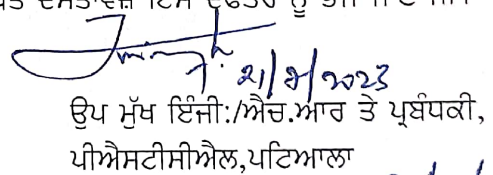 21/2/2023
ਉਪ ਮੁੱਖ ਇੰਜੀ:/ਐਚ.ਆਰ ਤੇ ਪ੍ਰਬੰਧਕੀ,
ਪੀਐਸਟੀਸੀਐਲ,ਪਟਿਆਲਾ